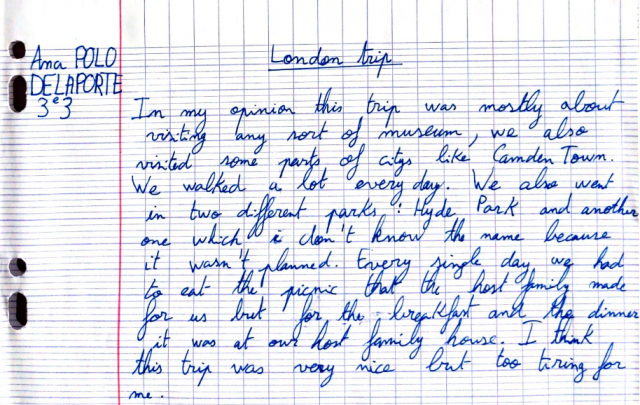 London trip
Ana POLO
DELAPORTE
3e3
In my opinion this trip was mostly about
visiting any sort of museum, we also
visited some parts of citys like Camden Town.
We walked a lot every day. We also went
in two different parks : Hyde Park and another
one which i don't know the name because
it wasn't planned. Every single day we had
to eat the picnic that the host family made
for us but for the breakfast and the dinner
it was at our host family house. I think
this trip was very nice but too tiring for
me.